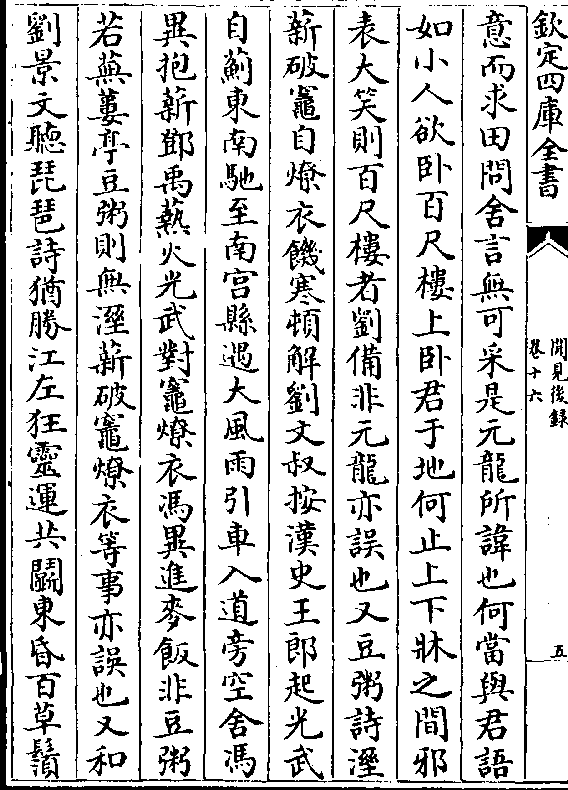 欽定四庫全書
聞見後錄
卷十六
五
意而求田問舍言無可采是元龍所諱也何當與君語
如小人欲卧百尺樓上卧君于地何止上下牀之間邪
表大笑則百尺樓者劉備非元龍亦誤也又豆粥詩溼
薪破竈自燎衣饑寒頓解劉文叔按漢史王郎起光武
自薊東南馳至南宮縣遇大風雨引車入道旁空舍馮
異抱薪鄧禹爇火光武對竈燎衣馮異進麥飯非豆粥
若蕪蔞亭豆粥則無溼薪破竈燎衣等事亦誤也又和
劉景文聽琵琶詩猶勝江左狂靈運共鬭東昏百草鬚